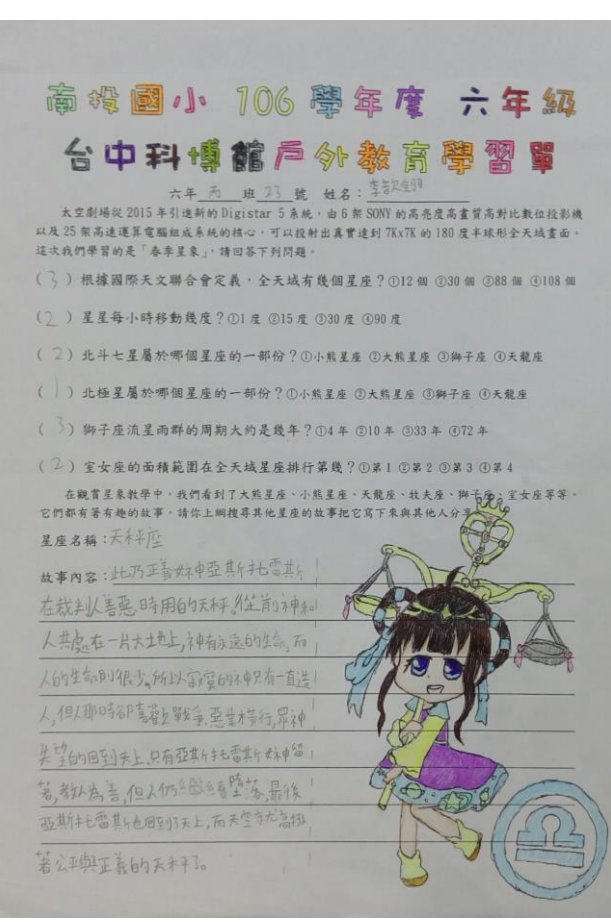 南投國小 106 學年度 六年級
台中科博館戶外教育學習單
六年 丙 班 23 號 姓名：李歆
太空劇場從 2015 年引進新的 Digistar 5 系統，由 6 架 SONY 的高亮度高畫質高對比數位投影機
以及 25 架高速運算電腦組成系統的核心，可以投射出真實達到 7Kx7K 的 180 度半球形全天域畫面。
這次我們學習的是「春季星象」，請回答下列問題。
( 3 ) 根據國際天文聯合會定義，全天域有幾個星座？①12 個 ②30 個 ③88 個 ④108 個
( 2 ) 星星每小時移動幾度？①1 度 ②15 度 ③30 度 ④90 度
( 2 ) 北斗七星屬於哪個星座的一部份？①小熊星座 ②大熊星座 ③獅子座 ④天龍座
( 1 ) 北極星屬於哪個星座的一部份？①小熊星座 ②大熊星座 ③獅子座 ④天龍座
( 3 ) 獅子座流星雨群的周期大約是幾年？①4 年 ②10 年 ③33 年 ④72 年
( 2 ) 室女座的面積範圍在全天域星座排行第幾？①第 1 ②第 2 ③第 3 ④第 4
在觀賞星象教學中，我們看到了大熊星座、小熊星座、天龍座、牧夫座、獅子座、室女座等等。
它們都有著有趣的故事。請你上網搜尋其他星座的故事把它寫下來與其他人分享。
星座名稱：天秤座
故事內容：此乃正義女神亞斯托雷斯
在裁判人善惡時用的天秤。從前神和
人共處在一片大土地上，神有永遠的生命，而
人的生命則很少。所以寂寞的神只有一直造
人，但人那時卻喜歡戰爭，惡業橫行，眾神
失望的回到天上，只有亞斯托雷斯女神留
著，教人為善，但人仍繼續墮落，最後
亞斯托雷斯也回到了天上，而天空就高掛
著公平與正義的天秤了。